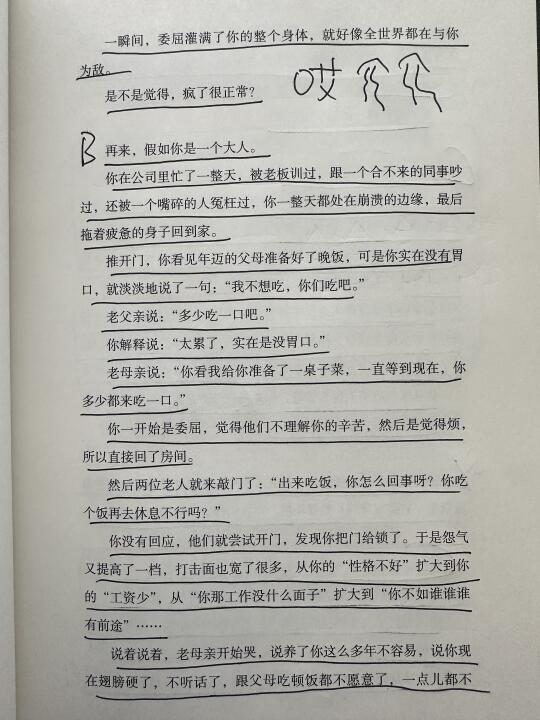 一瞬间，委屈灌满了你的整个身体，就好像全世界都在与你
为敌。
是不是觉得，疯了很正常？
哎
B
再来，假如你是一个大人。
你在公司里忙了一整天，被老板训过，跟一个合不来的同事吵
过，还被一个嘴碎的人冤枉过，你一整天都处在崩溃的边缘，最后
拖着疲惫的身子回到家。
推开门，你看见年迈的父母准备好了晚饭，可是你实在没有胃
口，就淡淡地说了一句：“我不想吃，你们吃吧。”
老父亲说：“多少吃一口吧。”
你解释说：“太累了，实在是没胃口。”
老母亲说：“你看我给你准备了一桌子菜，一直等到现在，你
多少都来吃一口。”
你一开始是委屈，觉得他们不理解你的辛苦，然后是觉得烦，
所以直接回了房间。
然后两位老人就来敲门了：“出来吃饭，你怎么回事呀？你吃
个饭再去休息不行吗？”
你没有回应，他们就尝试开门，发现你把门给锁了。于是怨气
又提高了一档，打击面也宽了很多，从你的“性格不好”扩大到你
的“工资少”，从“你那工作没什么面子”扩大到“你不如谁谁谁
有前途”……
说着说着，老母亲开始哭，说养了你这么多年不容易，说你现
在翅膀硬了，不听话了，跟父母吃顿饭都不愿意了，一点儿都不